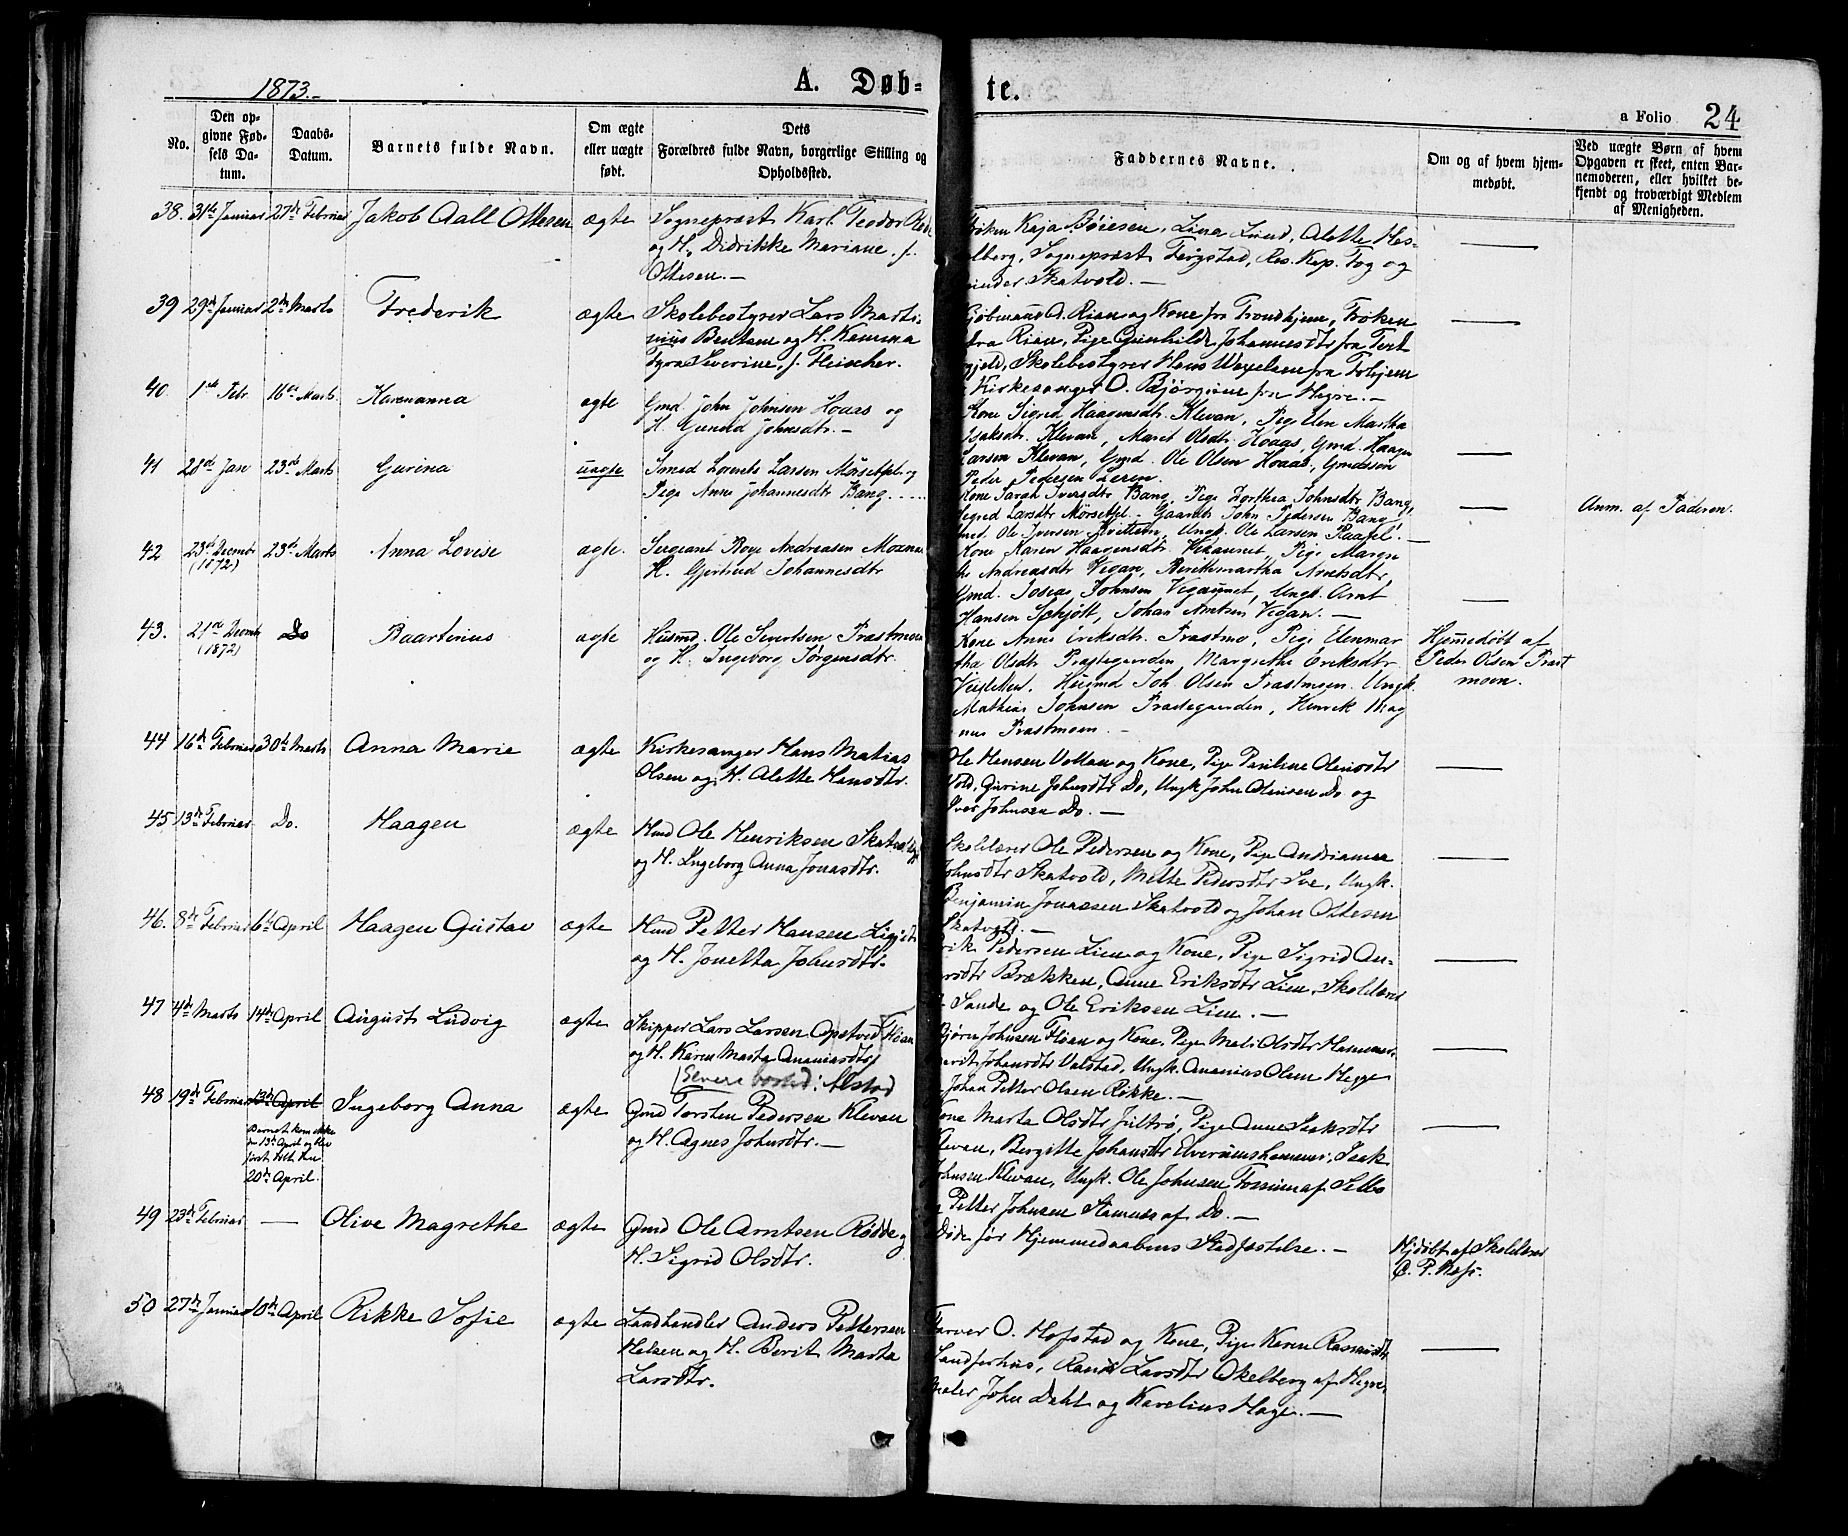 1873.
A. Døb-
te.
a Folio 24
No.
Den op-
givne Fød-
sels Da-
tum.
Daabs-
Datum.
Barnets fulde Navn.
Om ægte
eller uægte
født.
Dets
Forældres fulde Navn, borgerlige Stilling og
Opholdssted.
Faddernes Navne.
Om og af hvem hjem-
medøbt.
Ved uægte Børn af hvem
Opgaven er skeet, enten Bar-
nemoderen, eller hvilket be-
kjendt og troværdigt Medlem
af Menigheden.
38. 31te Januar 27de Februar Jakob Aall Ottesen ægte Sognepræst Karl Teodor
og H. Didrikke Mariane f.
Ottesen.
Kaja Bøiesen, Lina Lund, Alette Hes-
lberg, Sognepræst Fergstad, Res. Kap. Fog og
Skatvold. —
39 29de Januar 2den Marts Frederik ægte Skolebestyrer Lars Marti-
nius Bentsen og H. Kamma
Tyra Severine, f. Fleischer.
Kjøbmand O. Rian og Kone fra Trondhjem, Frøken
Rian, Pige Gunhilde Johannesdtr fra
Skolebestyrer Hans Wexelsen fra Trhjem
Kirkesanger O. Bjørgum fra Hegre. —
40. 1ste Febr. 16de Marts Karenanna ægte Gmd. John Johnsen Hoaas og
H. Gunild Johnsdtr. —
Kone Sigrid Haagensdtr. Klevan, Pige Elen Martha
Isaksdtr. Klevan, Maret Olsdtr. Hoaas, Gmd. Haagen
Larsen Klevan, Gmd. Ole Olsen Hoaas, Gmdssøn
Peder Pedersen Leren.
41 28de Jan 23de Marts Gurina uægte Smed Lorents Larsen Mørsetpl. og
Pige Anne Johannesdtr Bang
Kone Sarah Iversdtr Bang, Pige Dorthea Johnsdtr Bang,
Sigrid Larsdtr Mørsetpl. Gaardbr John Pedersen Bang
Ole Iversen Ungk. Ole Larsen
Anm. af Faderen.
42 23de Decembr
(1872) 23de Marts Anna Lovise ægte. Sergeant Roye Andreasen Moxnes
H. Gjertrud Johannesdtr
Kone Karen Haagensdtr. Vikaunet, Pige Margre
the Andreasdtr Vigan, Berithmartha Arntsdtr,
Gmd. Tobias Johnsen Vigaunet, Ungk. Arnt
Hansen Schjølt, Johan Arntsen Vigan. —
43. 21de Decembr
(1872) Do Baartinius ægte Husmd. Ole Sivertsen Præstmoen
og H. Ingeborg Jørgensdtr.
Kone Anne Eriksdtr. Præstmo, Pige Elenmar
tha Olsdtr Præstegaarden, Margrethe Eriksdtr
Husmd Joh. Olsen Præstmoen. Ungk.
Mathias Johnsen Præstegaarden, Henrik Mag
nus Præstmoen. —
Hjemmedøbt af
Peder Olsen Præst
moen.
44 16de Februar 30de Marts Anna Marie ægte Kirkesanger Hans Matias
Olsen og H. Alette Hansdtr.
Ole Hansen Vollan og Kone, Pige Pauline Oleusdtr
Vold, Gurine Johnsdtr Do, Ungk John Olausen Do og
Iver Johnsen Do. —
45 13de Februar Do. Haagen ægte Hmd Ole Henriksen Skatvold
og H. Ingeborg Anna Jonasdtr.
Skolelærer Ole Pedersen og Kone, Pige Andrianna
Johnsdtr Skatvold, Mette Pedersdtr Sve, Ungk.
Benjamin Jonassen Skatvold og Johan Ottesen
Skatvold. —
46. 8de Februar 6te April Haagen Gustav ægte Hmd Petter Hansen
og H. Jonetta Johnsdtr.
Erik Pedersen Lien og Kone, Pige Sigrid An-
dersdtr Brækken, Anne Eriksdtr Lien, Skolelærer
Sande og Ole Eriksen Lien. —
47 4de Marts 14de April August Ludvig ægte Skipper Lars Larsen Opstved Floan
og H. Karen Marta Ananiasdtr
(Senere bosted: Alstad
Bjørn Johnsen Floan og Kone, Pige Mali Olsdtr Hammer
Marit Johansdtr Valstad, Ungk. Ananias Olsen Hegge
Johan Petter Olsen Røkke. —
48 19de Februar 13de April
Barnet kom ikke
den 13de April og blev
først døbt den
20de April. Ingeborg Anna ægte Gmd Torsten Pedersen Klevan
og H. Agnes Johnsdtr. —
Kone Marta Olsdtr Jultrø, Pige Anne Isaksdtr
Klevan, Bergitte Johansdtr Elverumshammer, Isak
Johnsen Klevan, Ungk. Ole Johnsen Fossum af Selbo
Petter Johnsen Stamnes af Do. —
49 23de Februar — Olive Magrethe ægte Gmd Ole Arntsen Rødde og
H. Sigrid Olsdtr.
Døde før Hjemmedaabens Stadfæstelse. —
Hjdøbt af Skolelærer
C. P. Hofs.
50 27de Januar 10de April Rikke Sofie ægte Landhandler Anders Pettersen
Helsen og H. Berit Marta
Larsdtr.
Farver O. Hofstad og Kone, Pige Karen Rasmusdtr
Sandferhus, Randi Larsdtr Okelberg af Hegre,
Maler John Dahl og Karelius Hage. —